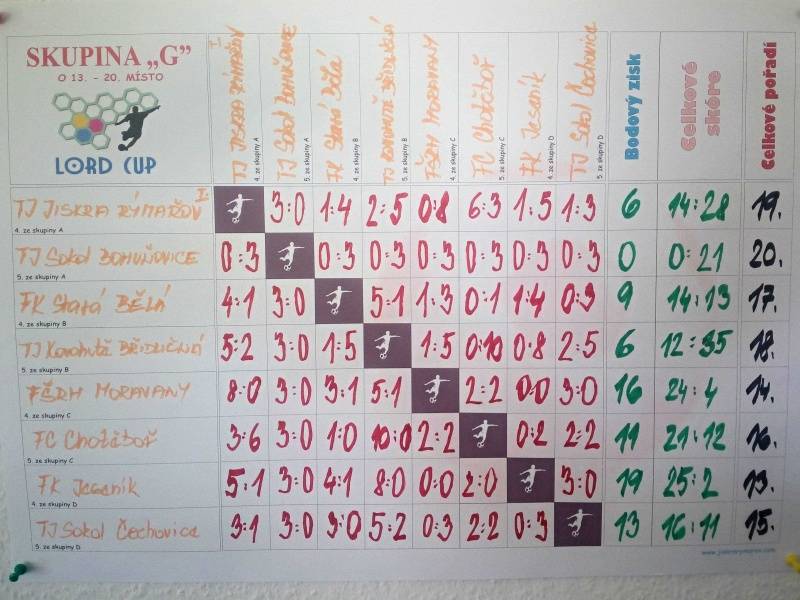 SKUPINA „G“
O 13. - 20. MÍSTO
LORD CUP
TJ JISKRA RÝMAŘOV I.
4. ze skupiny A
TJ Sokol BOHUŇOVICE
5. ze skupiny A
FK Stará Bělá
4. ze skupiny B
5. ze skupiny B
FŠRM MORAVANY
4. ze skupiny C
FC Chotěboř
5. ze skupiny C
FK Jeseník
4. ze skupiny D
TJ Sokol Čechovice
5. ze skupiny D
Bodový zisk
Celkové skóre
Celkové pořadí
TJ JISKRA RÝMAŘOV I. 3:0 1:4 2:5 0:8 6:3 1:5 1:3 6 14:28 19.
4. ze skupiny A
TJ Sokol BOHUŇOVICE 0:3 0:3 0:3 0:3 0:3 0:3 0:3 0 0:21 20.
5. ze skupiny A
FK Stará BĚLÁ 4:1 3:0 5:1 1:3 0:1 1:4 0:3 9 14:13 17.
4. ze skupiny B
TJ BŘIDLIČNÁ 5:2 3:0 1:5 1:5 0:10 0:8 2:5 6 12:35 18.
5. ze skupiny B
FŠRM MORAVANY 8:0 3:0 3:1 5:1 2:2 0:0 3:0 16 24:4 14.
4. ze skupiny C
FC Chotěboř 3:6 3:0 1:0 10:0 2:2 0:2 2:2 11 21:12 16.
5. ze skupiny C
FK Jeseník 5:1 3:0 4:1 8:0 0:0 2:0 3:0 19 25:2 13.
4. ze skupiny D
TJ Sokol Čechovice 3:1 3:0 3:0 5:2 0:3 2:2 0:3 13 16:11 15.
5. ze skupiny D